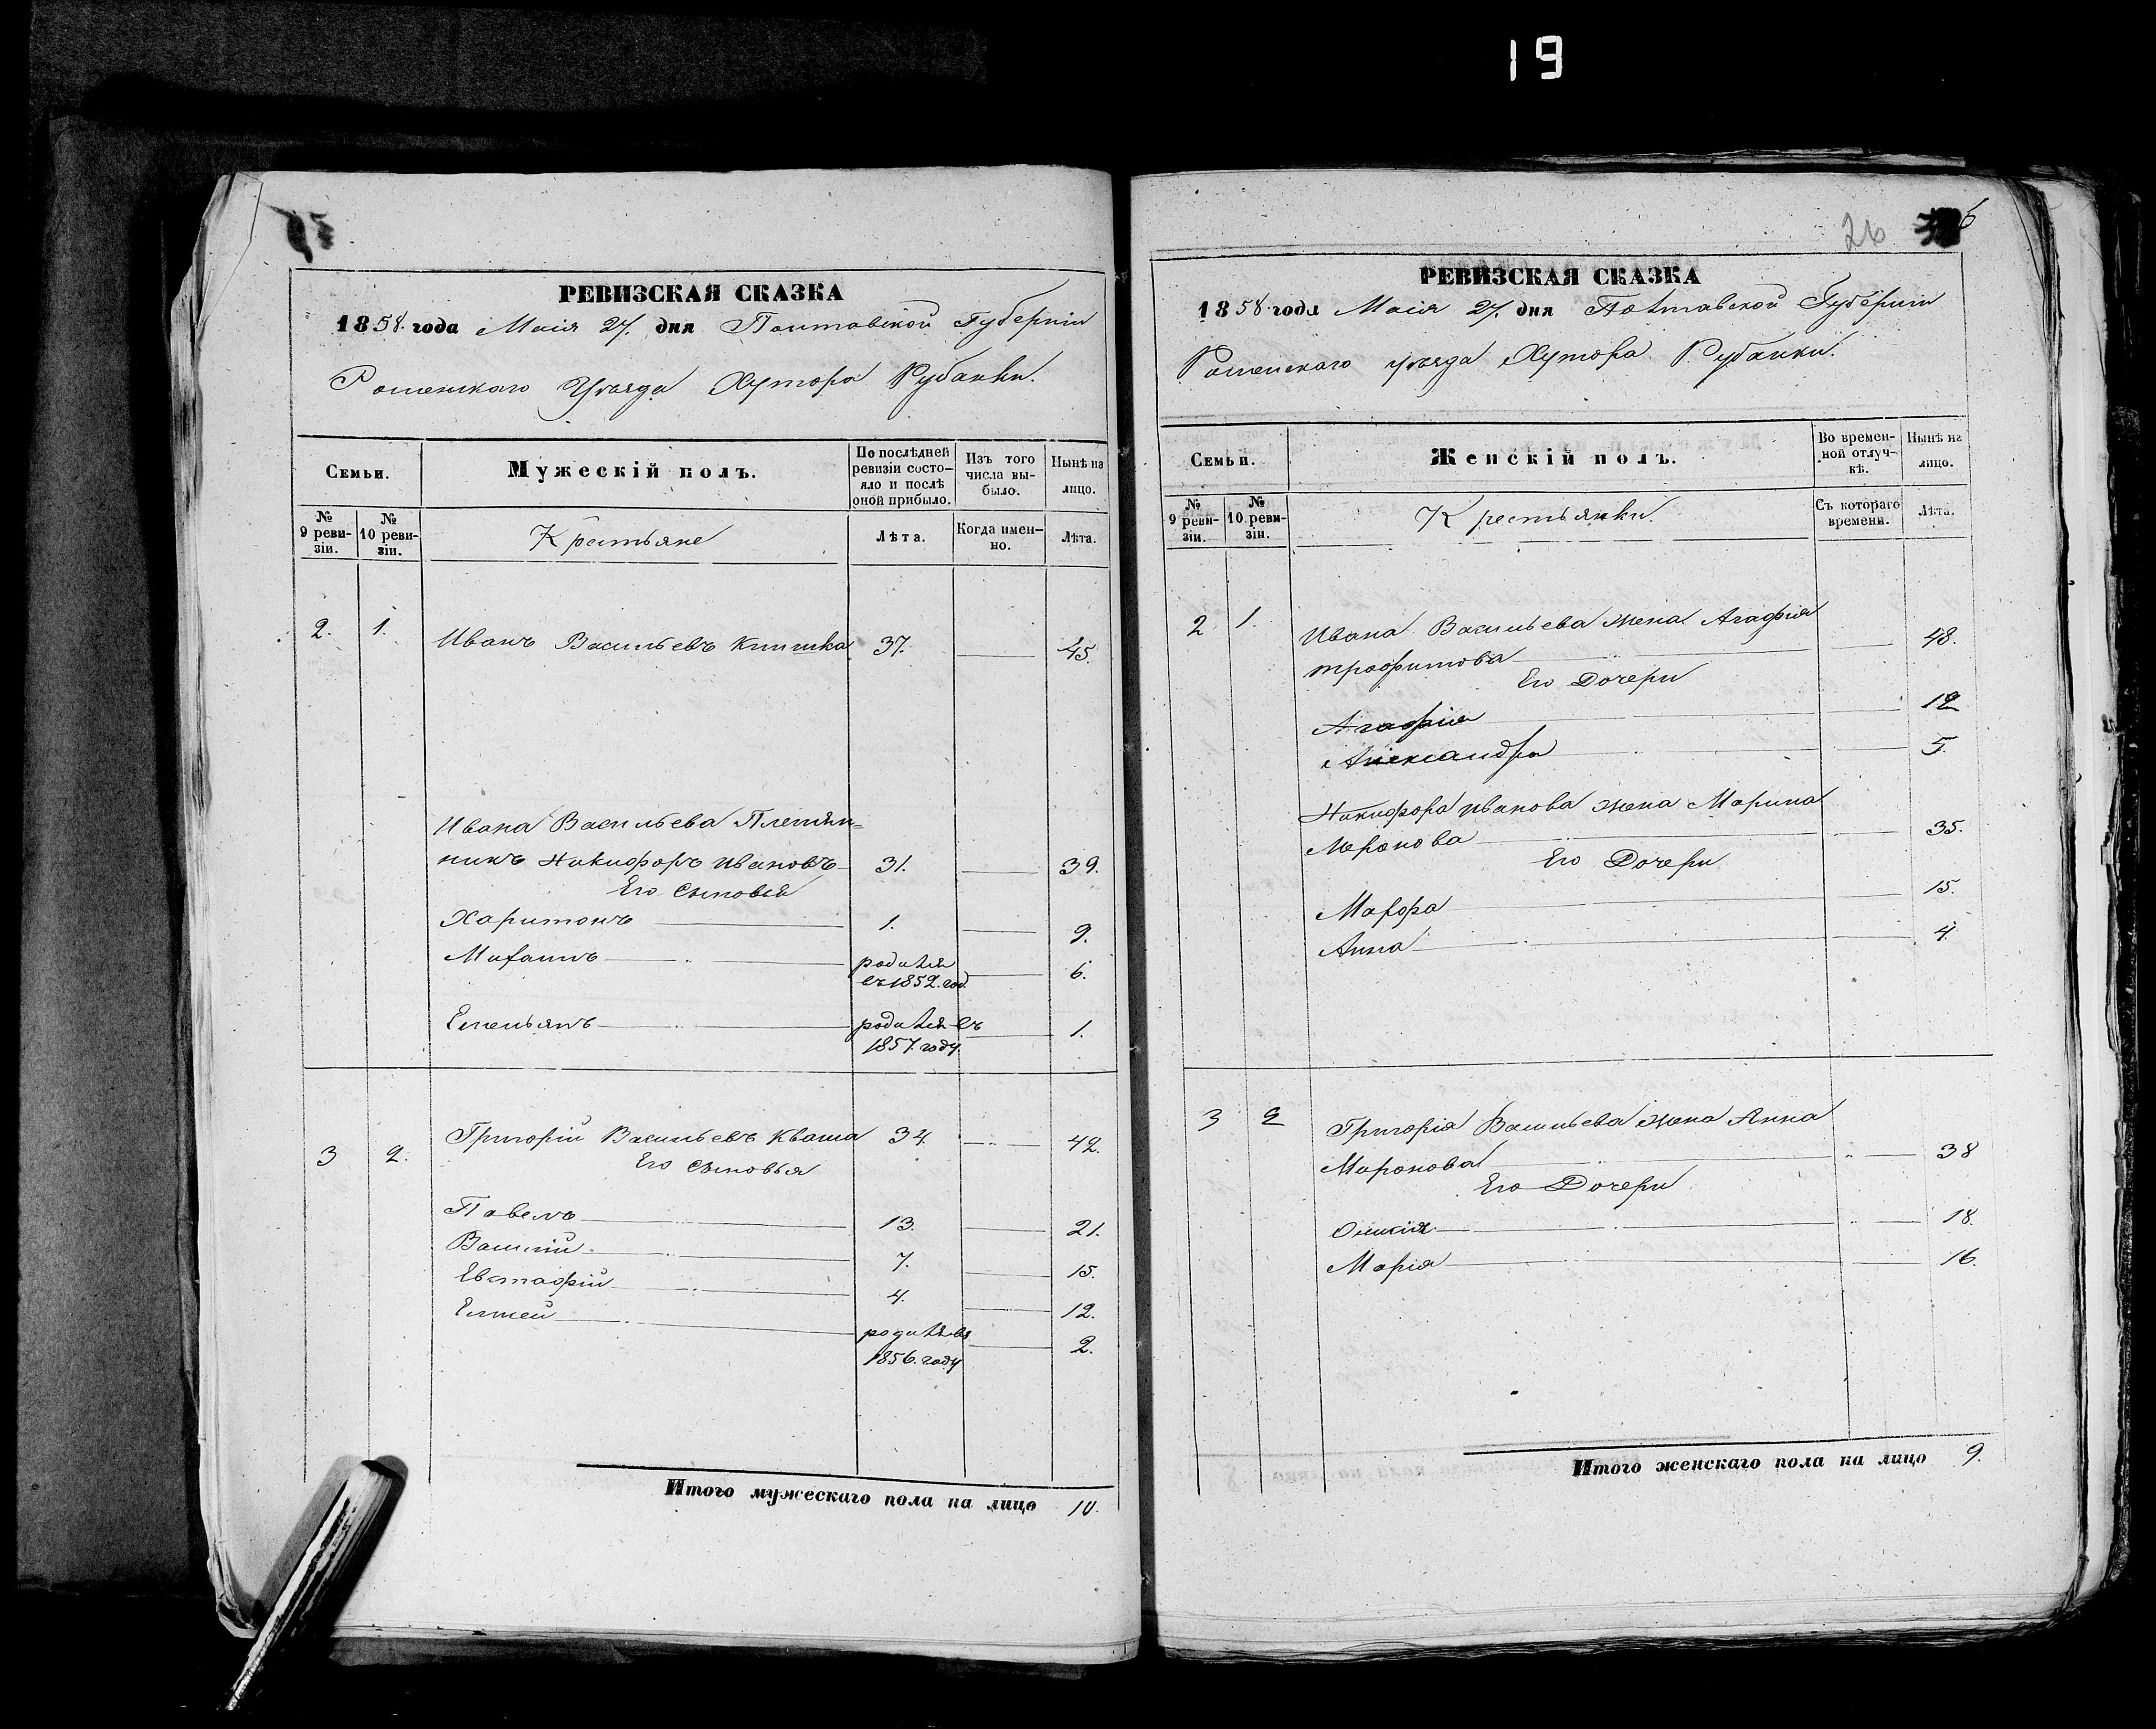 19
РЕВИЗСКАЯ СКАЗКА
1858. года Маія 27. дня Полтавской Губерніи
Роменскаго Уѣзда Хутора Рубанки.
Семьи.
Мужескій полъ.
По послѣдней
ревизіи состо-
яло и послѣ
оной прибыло.
Изъ того
числа вы-
было.
Нынѣ на
лицо.
№
9 реви-
зіи.
№
10 реви-
зіи.
Крестьяне
Лѣта.
Когда имен-
но.
Лѣта.
2. 1. Иванъ Васильевъ 37. 45.
Ивана Васильева Племян=
никъ Никифоръ Ивановъ 31. 39.
Его Сыновья
Харитонъ 1. 9.
Михаилъ родился 6.
въ 1852. год.
Емельянъ родился въ 1.
1857. году.
3 2. Григорій Васильевъ Кваша 34. 42.
Его Сыновья
Павелъ 13. 21.
Василій 7. 15.
Евстафій 4. 12.
Елисей родился въ 2.
1856. году
Итого мужескаго пола на лицо 10.
26
6
РЕВИЗСКАЯ СКАЗКА
1858. года Маія 27. дня Полтавской Губерніи
Роменскаго уѣзда Хутора Рубанки.
Семьи.
Женскій полъ.
Во времен-
ной отлуч-
кѣ.
Нынѣ на
лицо.
№
9 реви-
зіи.
№
10 реви-
зіи.
Крестьянки.
Съ котораго
времени.
Лѣта.
2 1. Ивана Васильева жена Агафія
трофимова 48.
Его Дочери
Агафія 12
Александра 5.
Никифора Иванова жена Марина
Меронова 35.
Его Дочери
Мафра 15.
Анна 4.
3 2 Григорія Васильева жена Анна
Миронова 38
Его Дочери
18.
Марія 16.
Итого женскаго пола на лицо 9.